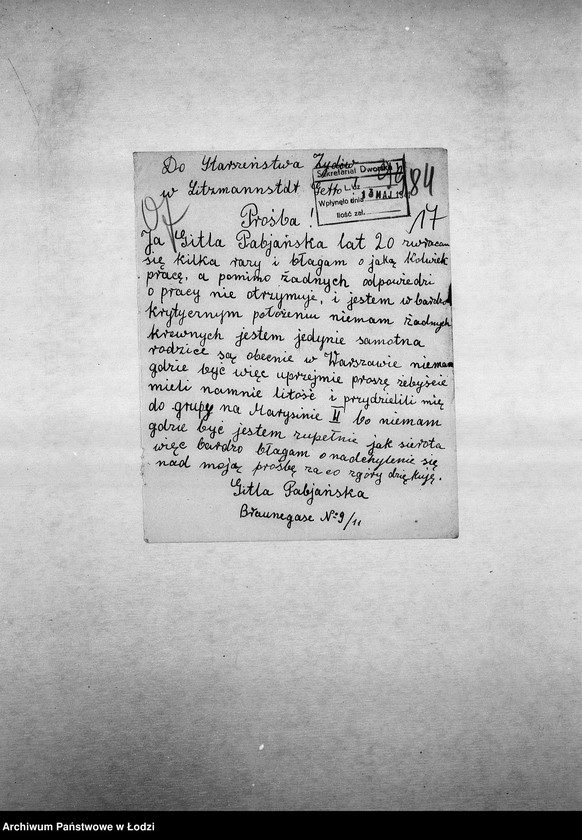 Do Starszeństwa Żydów
w Litzmannstdt Getto
Sekretariat Dworska
L.dz.
Wpłynęło dnia 13 MAJ 194
Ilość zał.
84
17
Prośba!
Ja Gitla Pabjańska lat 20 zwracam
się kilka razy i błagam o jaką kolwiek
pracę, a pomimo żadnych odpowiedzi
o pracy nie otrzymuje, i jestem w bardzo
krytycznym położeniu niemam żadnych
krewnych jestem jedynie samotna
rodzice są obecnie w Warszawie niemam
gdzie być więc uprzejmie proszę żebyście
mieli namnie litość i przydzielili mię
do grupy na Marysinie II bo niemam
gdzie być jestem zupełnie jak sierota
więc bardzo błagam o nadchylenie się
nad moją prośbę za co zgóry dziękuję.
Gitla Pabjańska
Braunegase No 9/11
Archiwum Państwowe w Łodzi